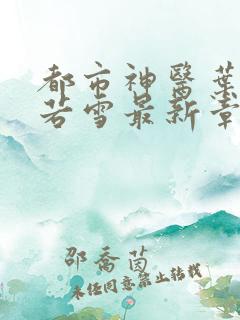 都市神醫葉
若雪最新章
邵喬茵
未经同意禁止转载